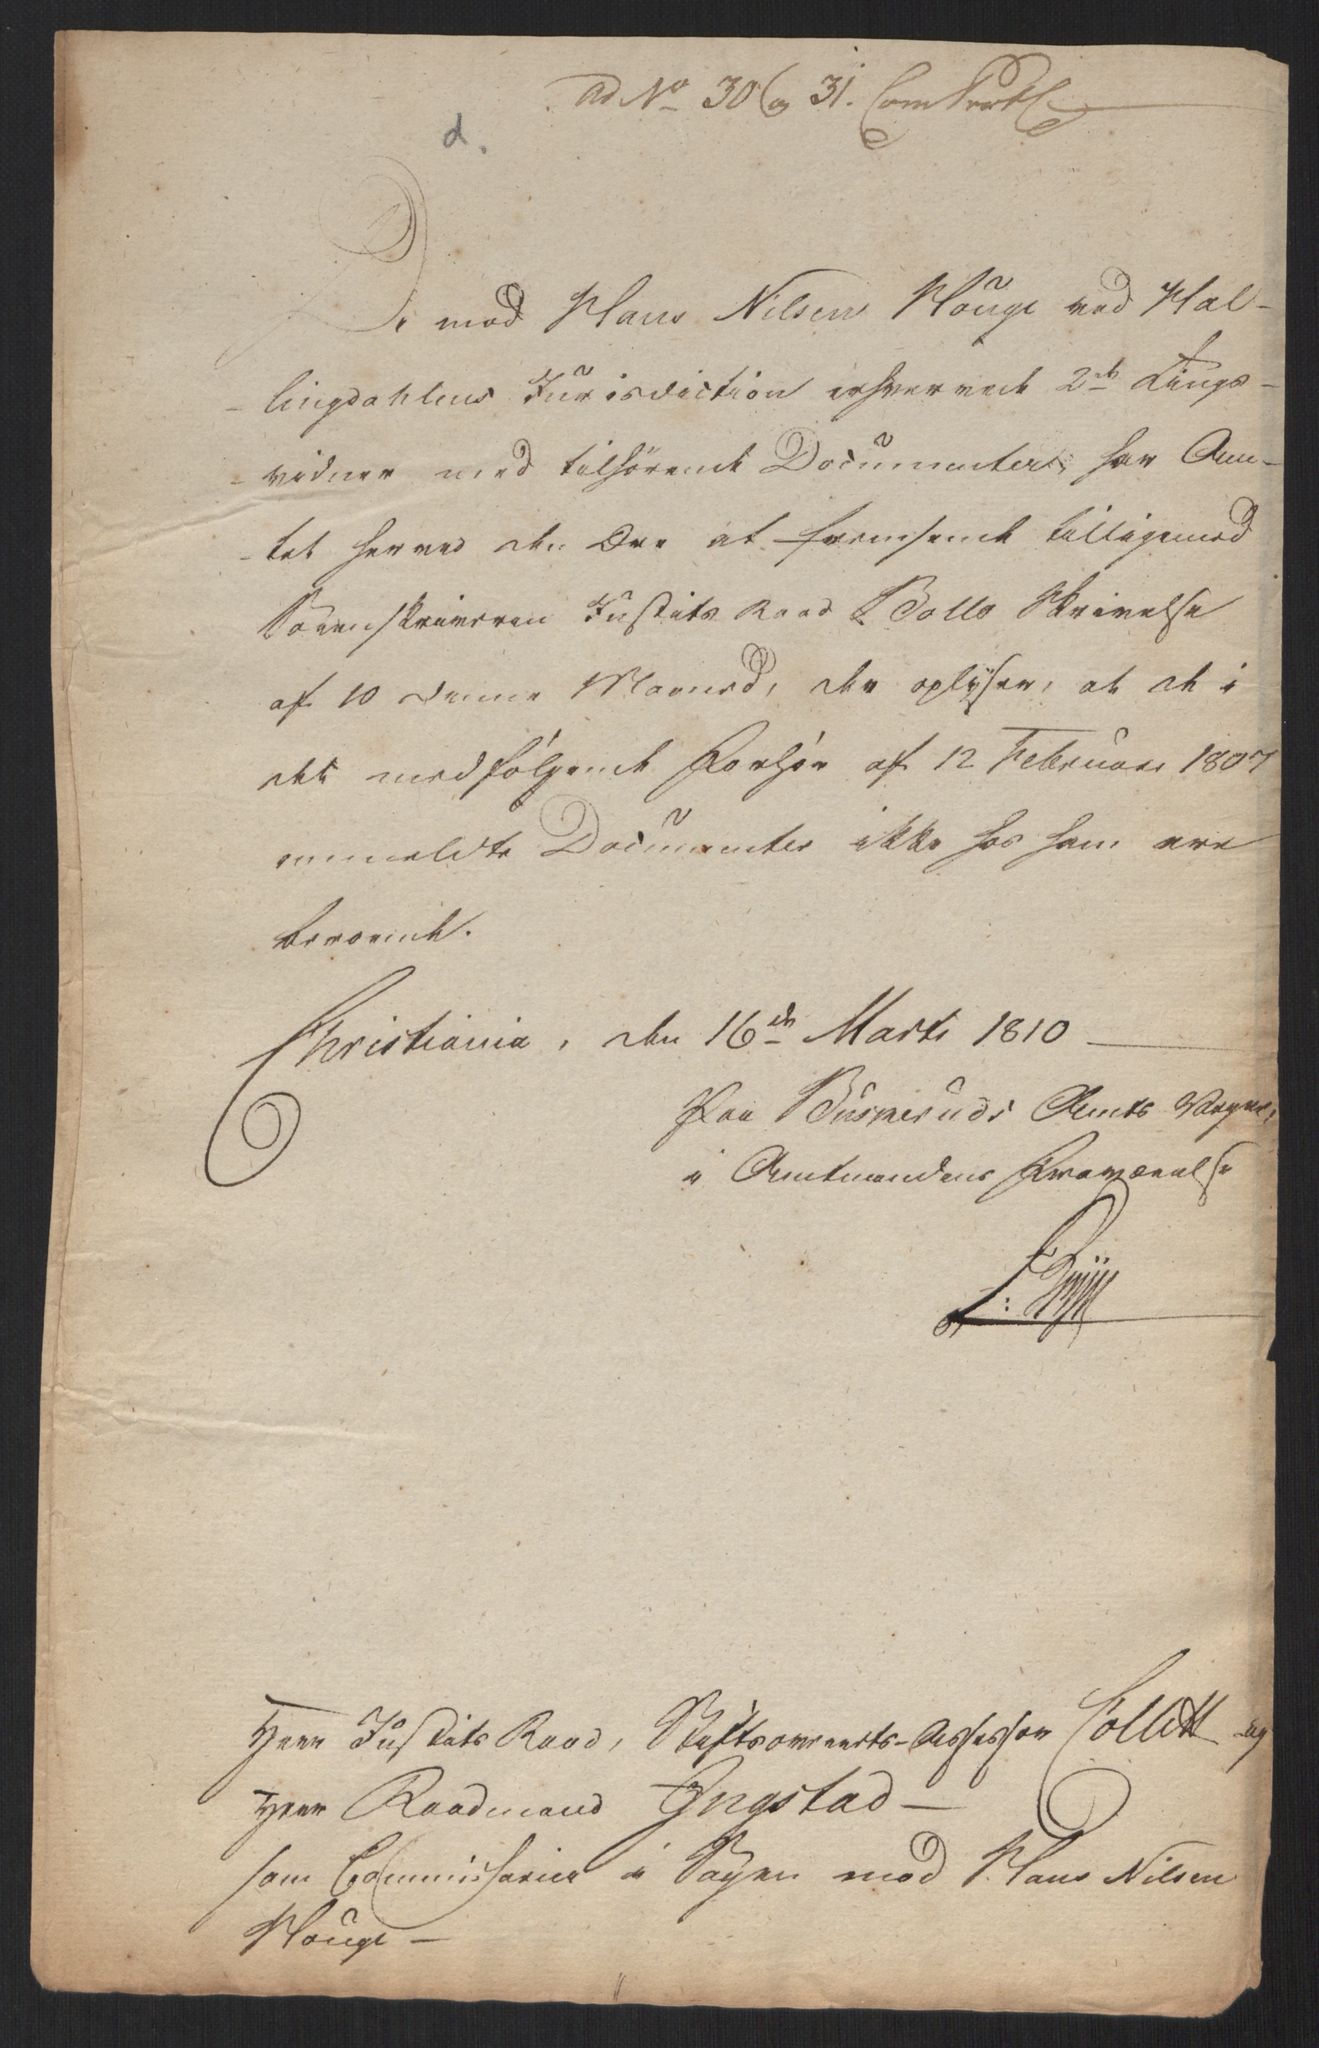 Ad No 30 og 31. Com Prot
d.
De mod Hans Nilsen Houge ved Hal-
lingdahlens Jurisdiction erhvervede 2de Tings-
vidner med tilhörende Documenter, har Am-
tet herved den Ære at fremsende tilligemed
Sorenskriveren Justits Raad Bolls Skrivelse
af 10 denne Maaned, der oplÿser, at de i
det medfølgende Forhør af 12 Februari 1807
ommeldte Documenter ikke hos ham ere
beroende.
Christiania, den 16de Marts 1810
Paa Buskeruds Amts Vegne,
i Amtmandens Fraværelse
Herr Justits Raad, Stiftsoverrets-Assessor Collett og
Herr Raadmand Ingstad
som Commissarier i Sagen mod Hans Nilsen
Houge